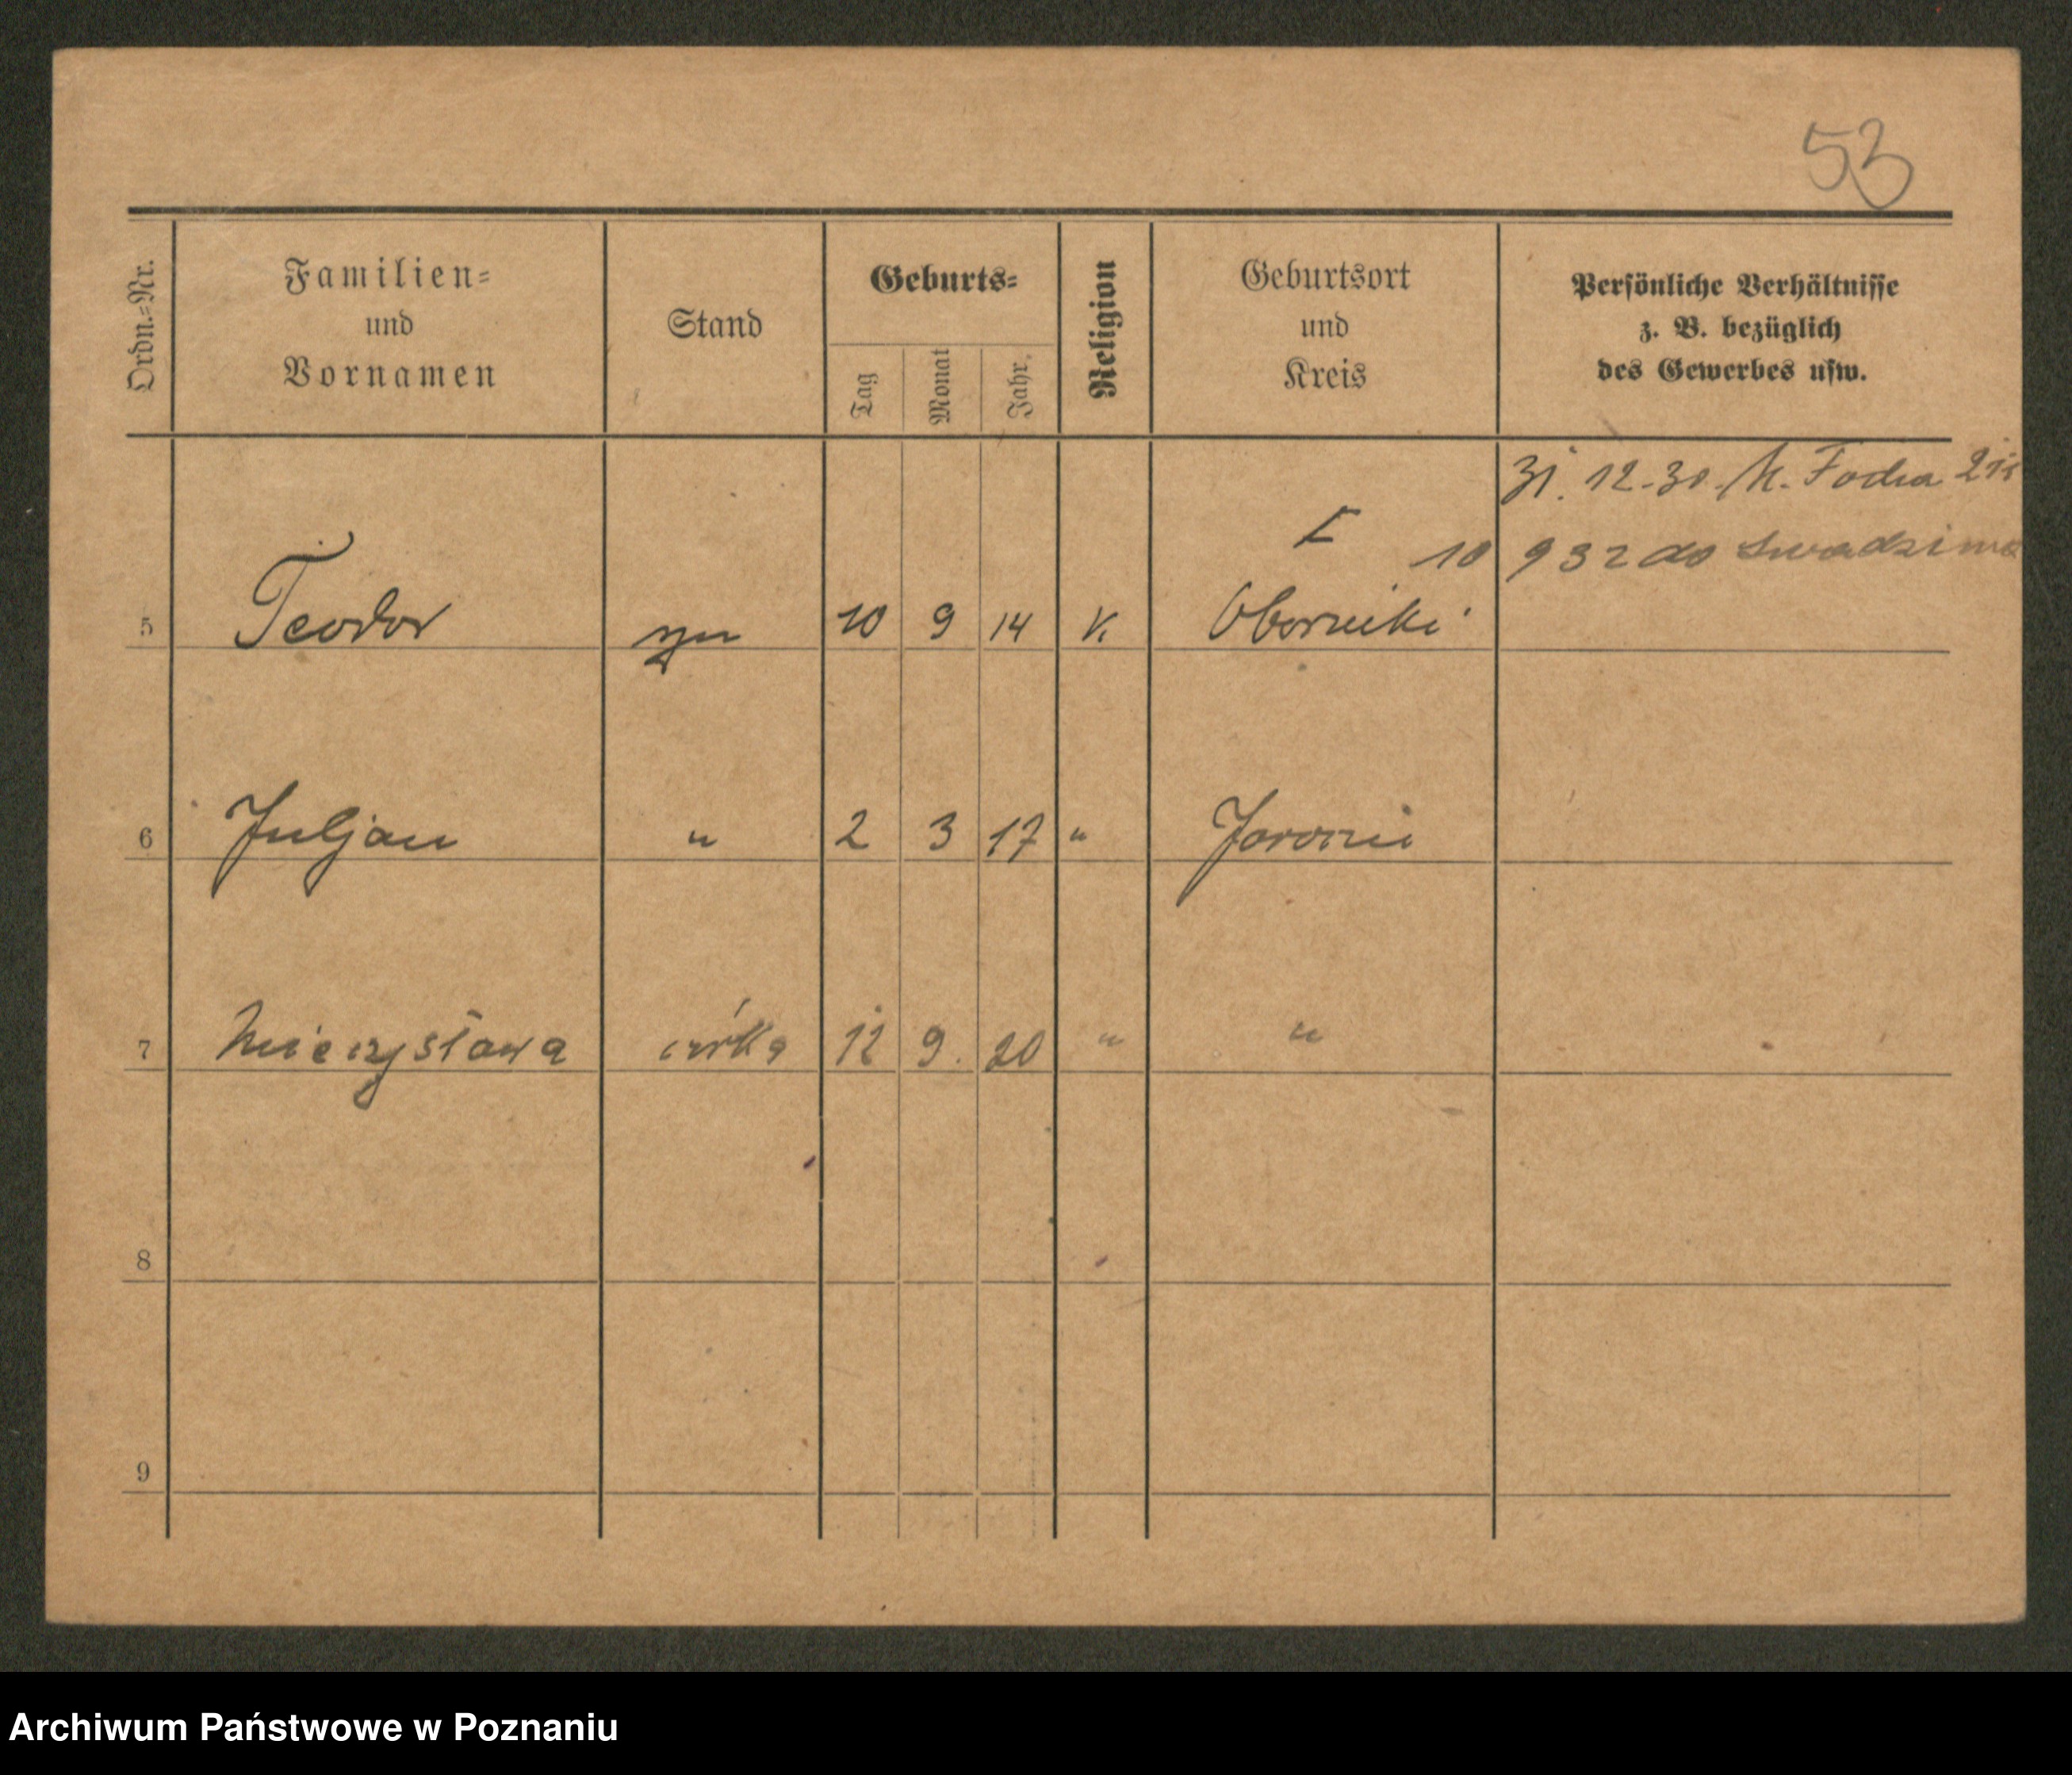 53
Ordn.=Nr.
Familien=
und
Vornamen
Stand
Geburts=
Tag
Monat
Jahr.
Religion
Geburtsort
und
Kreis
Persönliche Verhältnisse
z. B. bezüglich
des Gewerbes usw.
31. 12. 30. M.
10 932 do Swadzima
5 Teodor syn 10 9 14 K. Oborniki
6 Juljan " 2 3 17 "
7 Mieczysława córka 12 9. 20 " "
8
9
Archiwum Państwowe w Poznaniu